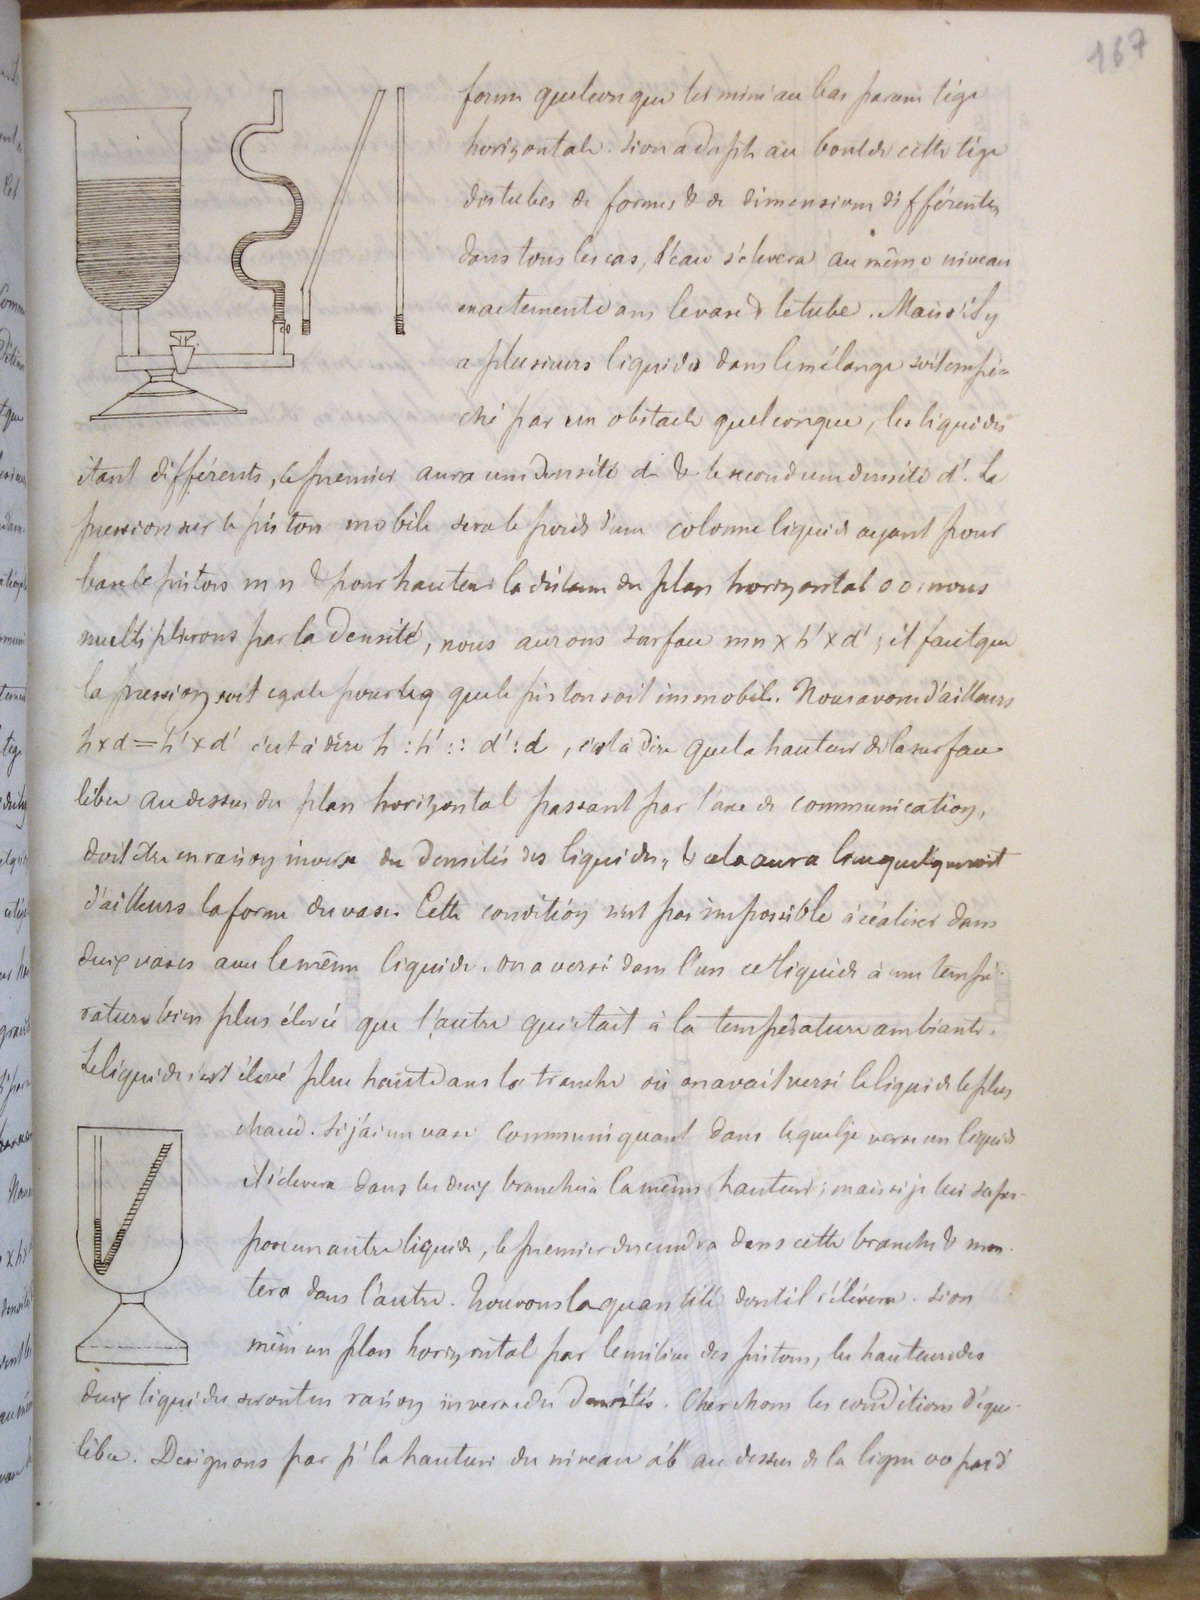 167
forme quelconque terminé au bas par une tige
horizontale. Si on adapte au bout de cette tige
des tubes de formes & de dimensions différentes,
dans tous les cas, l'eau s'élevera au même niveau
exactement dans le vase & le tube. Mais s'il y
a plusieurs liquides dans le mélange soit empê-
ché par un obstacle quelconque, les liquides
étant différents, le premier aura une densité d & le second une densité d'. La
pression sur le piston mobile sera le poids d'une colonne liquide ayant pour
base le piston m n & pour hauteur la distance du plan horizontal o o; nous
multiplierons par la densité, nous aurons surface mn x h' x d'; il faut que
la pression soit egale pour que le piston soit immobile. Nous avons d'ailleurs
h x d = h' x d' c'est à dire h : h' :: d' : d, c'est à dire que la hauteur de la surface
libre au dessus du plan horizontal passant par l'axe de communication,
doit être en raison inverse des densités des liquides, & cela aura lieu quelque soit
d'ailleurs la forme du vase. Cette condition n'est pas impossible à réaliser dans
deux vases avec le même liquide. On a versé dans l'un ce liquide à une tempé-
rature bien plus élevée que l'autre qui était à la température ambiante.
Le liquide s'est élevé plus haut dans la branche où on avait versé le liquide le plus
chaud. Si j'ai un vase communiquant dans lequel je verse un liquide
il s'élevera dans les deux branches à la même hauteur; mais si je lui super-
pose un autre liquide, le premier descendra dans cette branche & mon-
tera dans l'autre. Trouvons la quantité dont il s'élévera. Si on
mène un plan horizontal par le milieu des pistons, les hauteurs des
deux liquides seront en raison inverse des densités. Cherchons les conditions d'équi-
libre. Designons par p' la hauteur du niveau a'b' au dessus de la ligne oo par d'